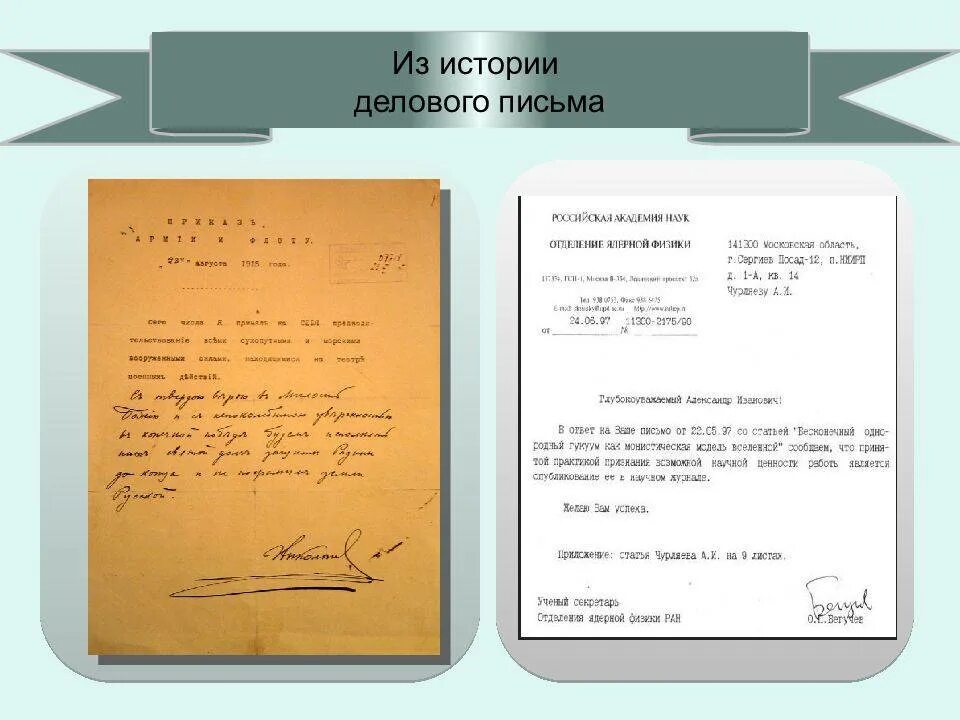 Из истории
делового письма
ПРИКАЗЪ
АРМІИ И ФЛОТУ.
"23" августа 1915 года.
Сего числа Я принялъ на СЕБЯ предводи-
тельствованіе всѣми сухопутными и морскими
вооруженными силами, находящимися на театрѣ
военныхъ дѣйствій.
Съ твердою вѣрою въ милость
Божію и съ непоколебимою увѣренностью
въ конечной побѣдѣ будемъ исполнять
нашъ святой долгъ защиты Родины
до конца и не посрамимъ земли
Русской.
Николай
РОССИЙСКАЯ АКАДЕМИЯ НАУК
ОТДЕЛЕНИЕ ЯДЕРНОЙ ФИЗИКИ
Москва
от 24.06.97 № 11300-2175/90
141300 Московская область,
г.Сергиев Посад-12, п.НИИРП
д. 1-А, кв. 14
Чурляеву А.И.
Глубокоуважаемый Александр Иванович!
В ответ на Ваше письмо от 22.05.97 со статьей "Бесконечный одно-
родный гукуум как монистическая модель вселенной" сообщаем, что приня-
той практикой признания возможной научной ценности работы является
опубликование ее в научном журнале.
Желаю Вам успеха.
Приложение: статья Чурляева А.И. на 9 листах.
Ученый секретарь
Отделения ядерной физики РАН
О.П.Вегучев